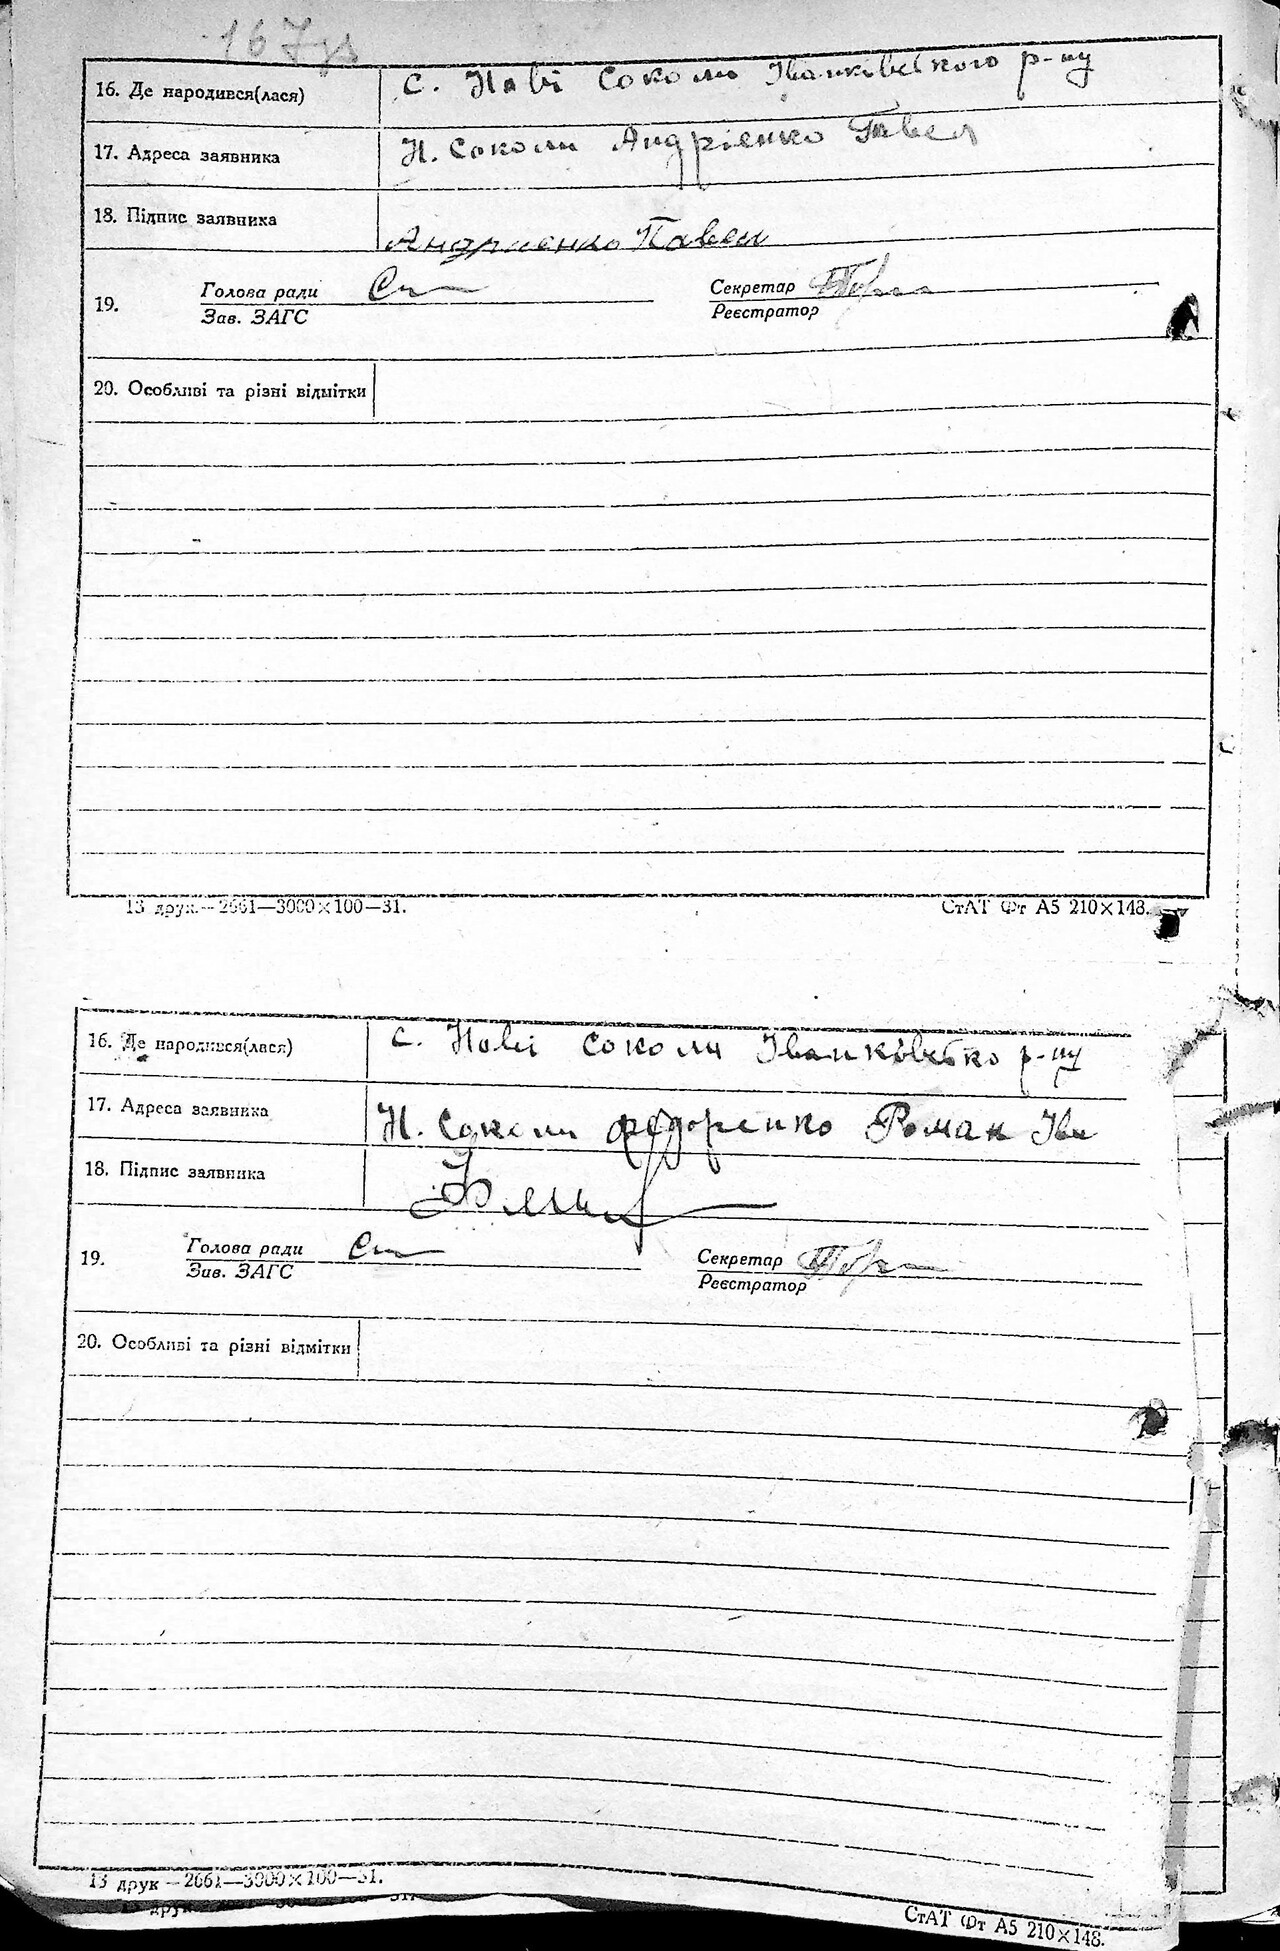 167зв
16. Де народився(лася) с. Нові Соколи Іванківського р-ну
17. Адреса заявника Н. Соколи Андрієнко Павел
18. Підпис заявника Андриенко Павел
19. Голова ради Секретар
Зав. ЗАГС Реєстратор
20. Особливі та різні відмітки
13 друк.—2661—3000×100—31. СтАТ Фт А5 210×148.
16. Де народився(лася) с. Нові Соколи Іванківсько р-ну
17. Адреса заявника Н. Соколи Федоренко Роман Іва
18. Підпис заявника
19. Голова ради Секретар
Зав. ЗАГС Реєстратор
20. Особливі та різні відмітки
13 друк—2661—3000×100—31.
СтАТ Фт А5 210×148.